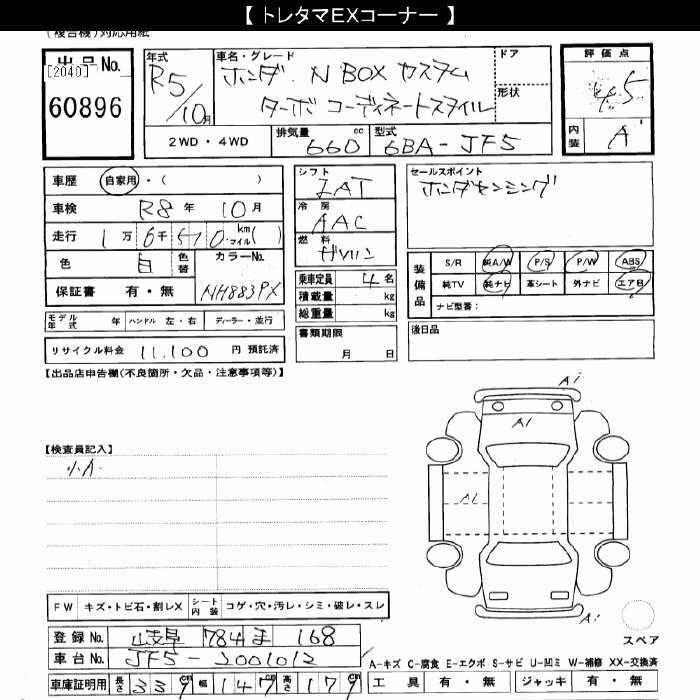 【 トレタマEXコーナー 】
(複合機)対応用紙
出品No.
[2040]
60896
年式
R5/10月
車名・グレード
ホンダ N BOX カスタム
ターボ コーディネートスタイル
ドア
形状
評価点
4.5
内装
A
2WD・4WD
排気量 660 cc
型式 6BA-JF5
車歴 自家用・( )
車検 R8年 10月
走行 1万6千570 km マイル( )
色 白 色替
カラーNo. NH883PX
保証書 有・無
モデル年式 年 ハンドル 左・右 ディーラー・並行
リサイクル料金 11,100 円 預託済
シフト
IAT
冷房
AAC
燃料
ガソリン
乗車定員 4名
積載量 kg
総重量 kg
書類期限
月 日
セールスポイント
ホンダセンシング
装備品
S/R 純A/W P/S P/W ABS
純TV 純ナビ 革シート 外ナビ エアB
ナビ型番：
後日品
【出品店申告欄(不良箇所・欠品・注意事項等)】
【検査員記入】
小A
A1
A1
AL
A1
スペア
FW キズ・トビ石・割レX シート内装 コゲ・穴・汚レ・シミ・破レ・スレ
登録No. 岐阜 784 ま 168
車台No. JF5-2001012
車庫証明用 長さ 339cm 幅 147cm 高さ 179cm
A-キズ C-腐食 E-エクボ S-サビ U-凹ミ W-補修 XX-交換済
工具 有・無 ジャッキ 有・無